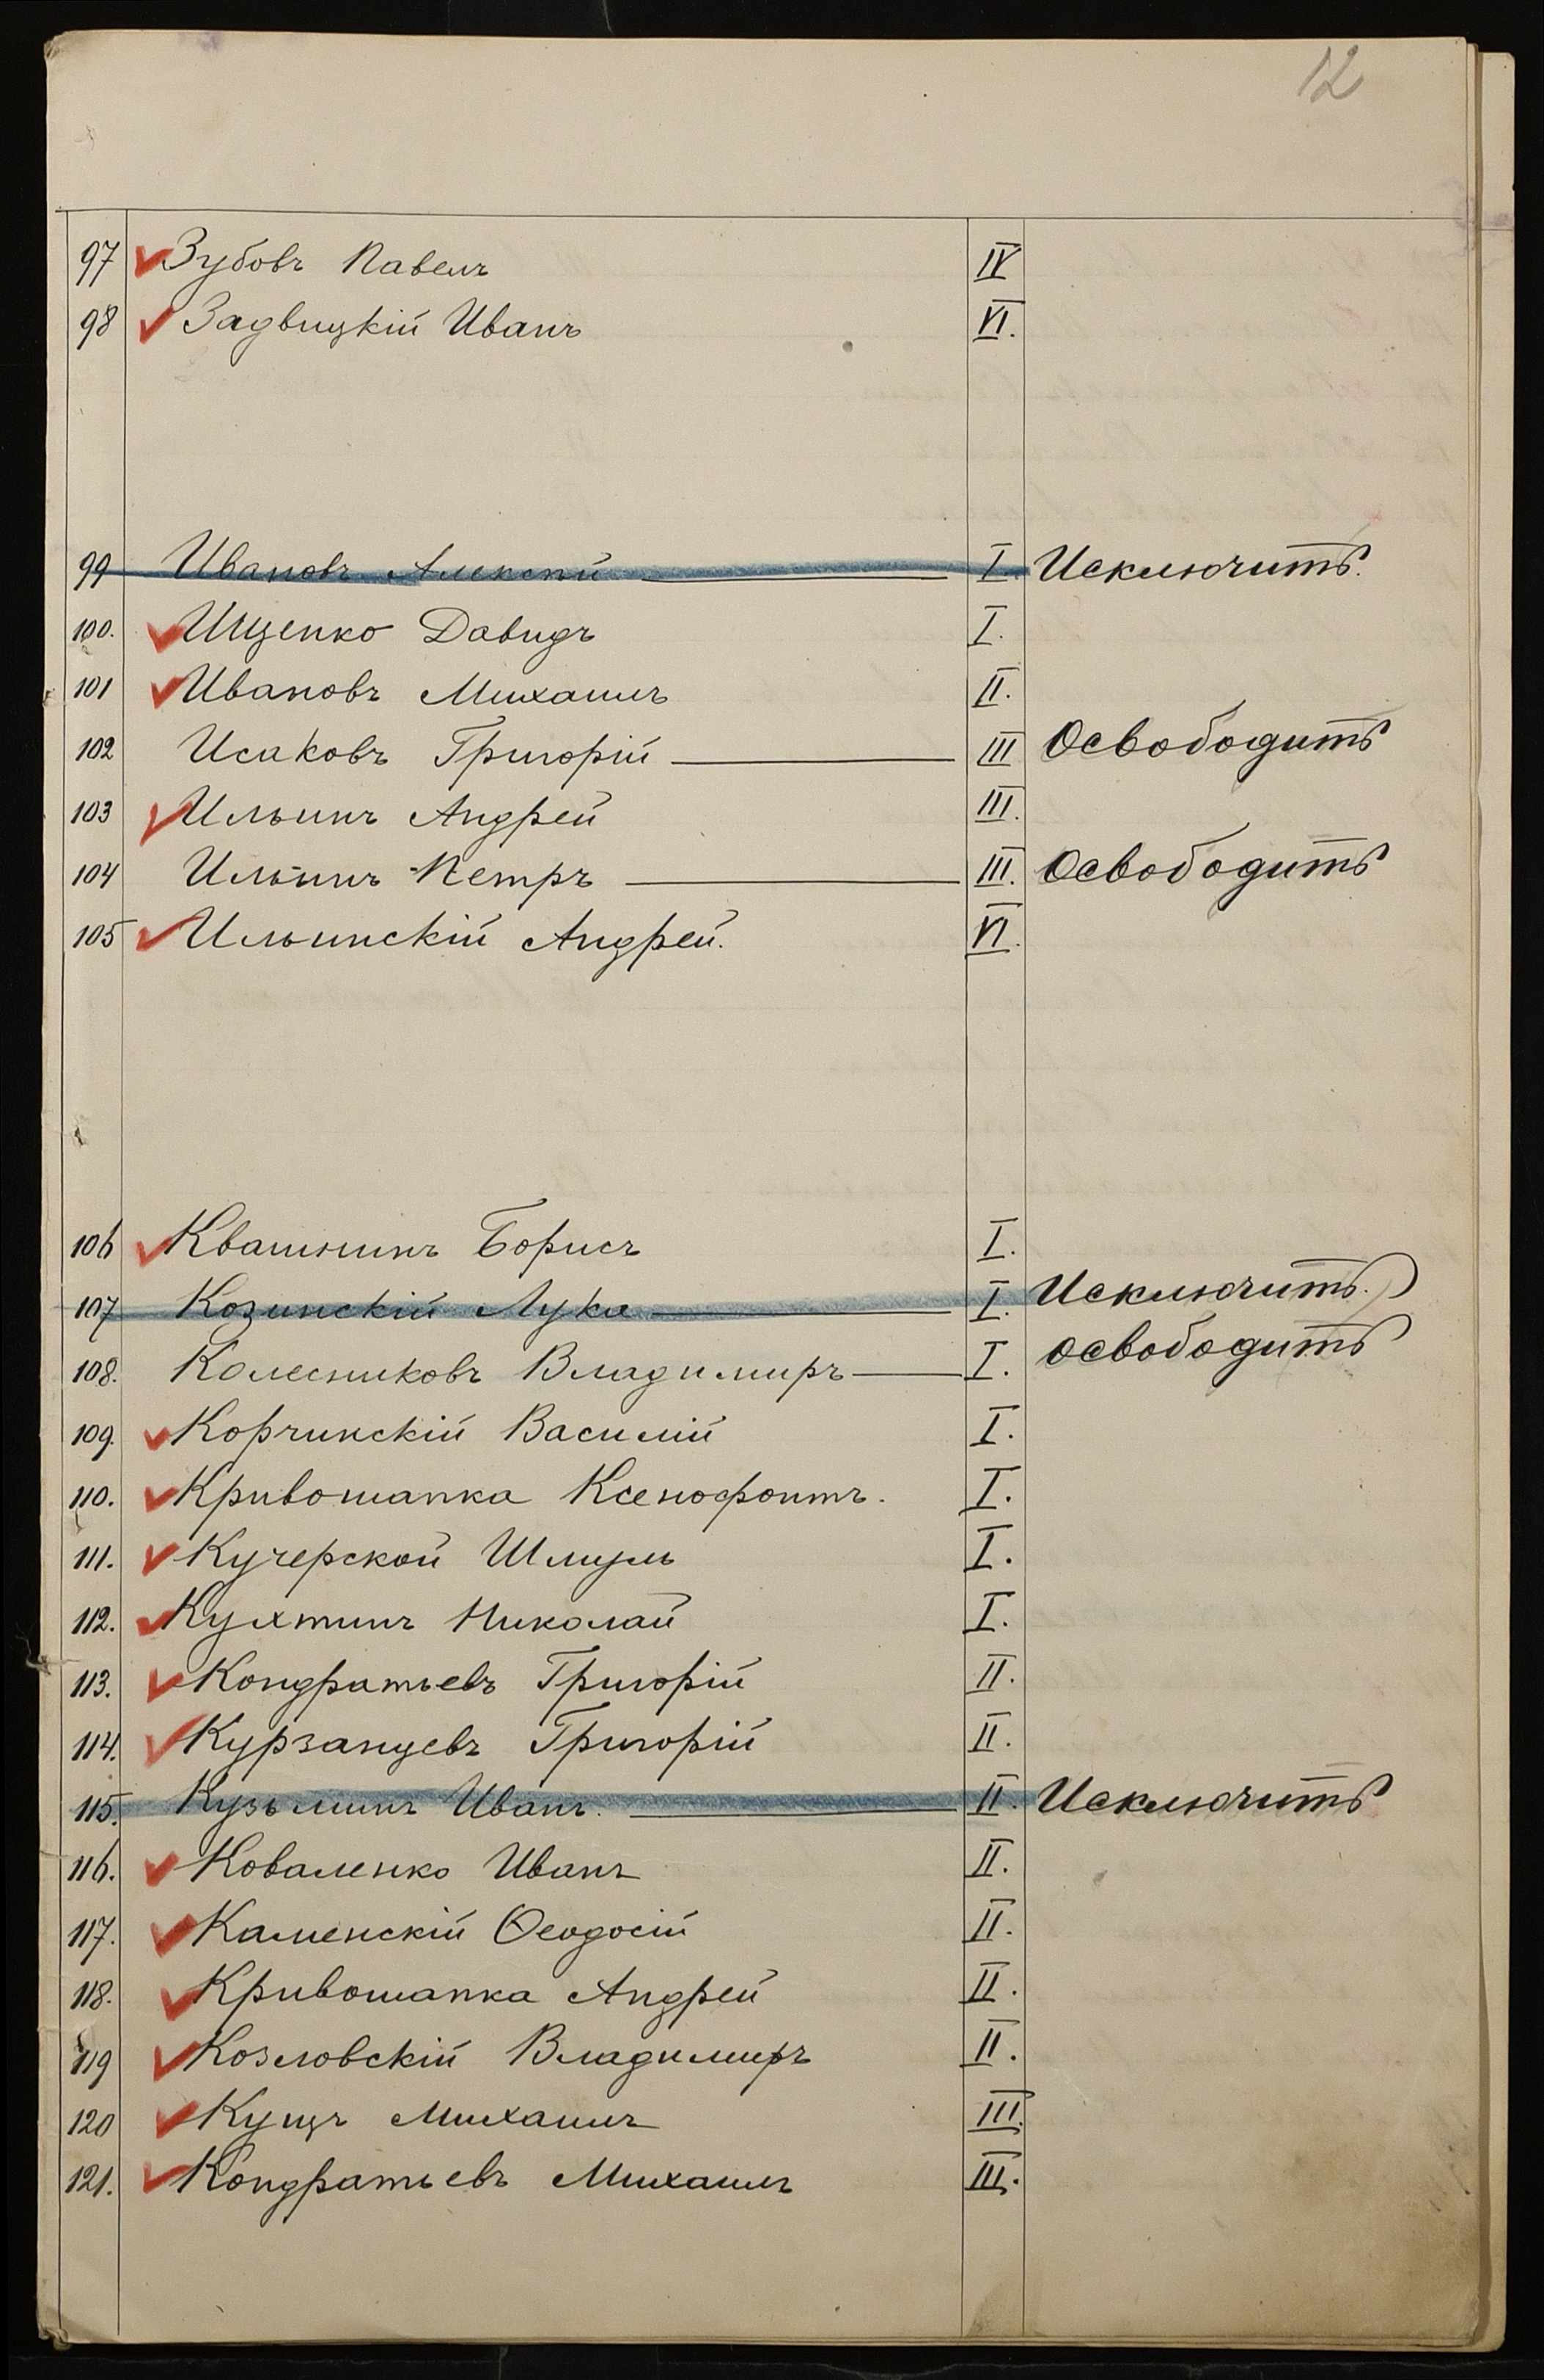 12
97 Зубовъ Павелъ IV
98 Задвицкій Иванъ VI.
99 Ивановъ Алексѣй I. Исключить.
100. Ищенко Давидъ I.
101 Ивановъ Михаилъ II.
102 Исаковъ Григорій III Освободить
103 Ильинъ Андрей III.
104 Ильинъ Петръ III. Освободить
105 Ильинскій Андрей. VI.
106 Квашнинъ Борисъ I.
107 Козинскій Лука I. Исключить.
108. Колесниковъ Владимиръ I. освободить
109. Корчинскій Василій I.
110. Кривошапка Ксенофонтъ. I.
111. Кучерской Шмуль I.
112. Кухтинъ Николай I.
113. Кондратьевъ Григорій II.
114. Курзанцевъ Григорій II.
115. Кузьминъ Иванъ. II. Исключить
116. Коваленко Иванъ II.
117. Каменскій Ѳеодосій II.
118. Кривошапка Андрей II.
119 Козловскій Владимиръ II.
120 Кущъ Михаилъ III.
121. Кондратьевъ Михаилъ III.